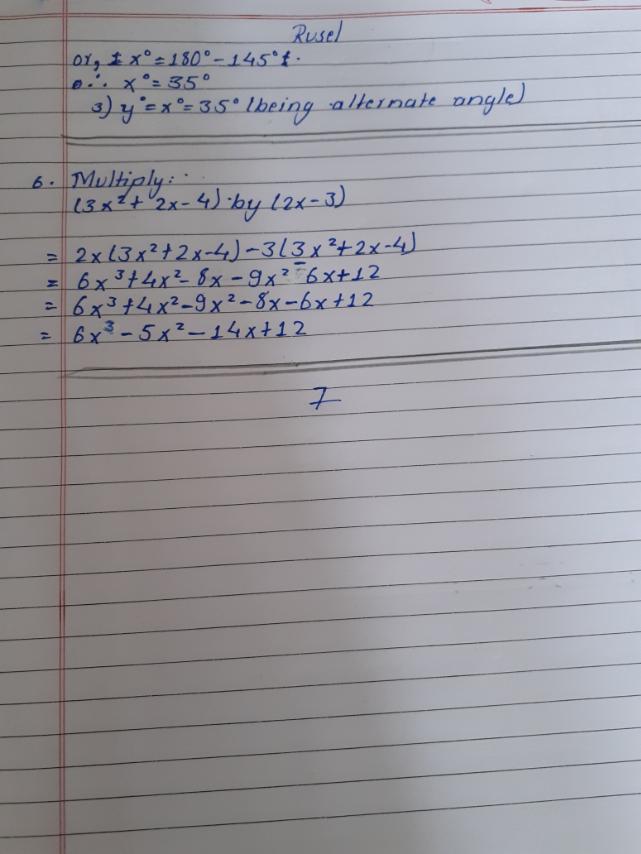 Rusel
or, x° = 180° - 145°
∴ x° = 35°
3) y° = x° = 35° (being alternate angle)
6. Multiply:
(3x² + 2x - 4) by (2x - 3)
= 2x(3x² + 2x - 4) - 3(3x² + 2x - 4)
= 6x³ + 4x² - 8x - 9x² - 6x + 12
= 6x³ + 4x² - 9x² - 8x - 6x + 12
= 6x³ - 5x² - 14x + 12
7